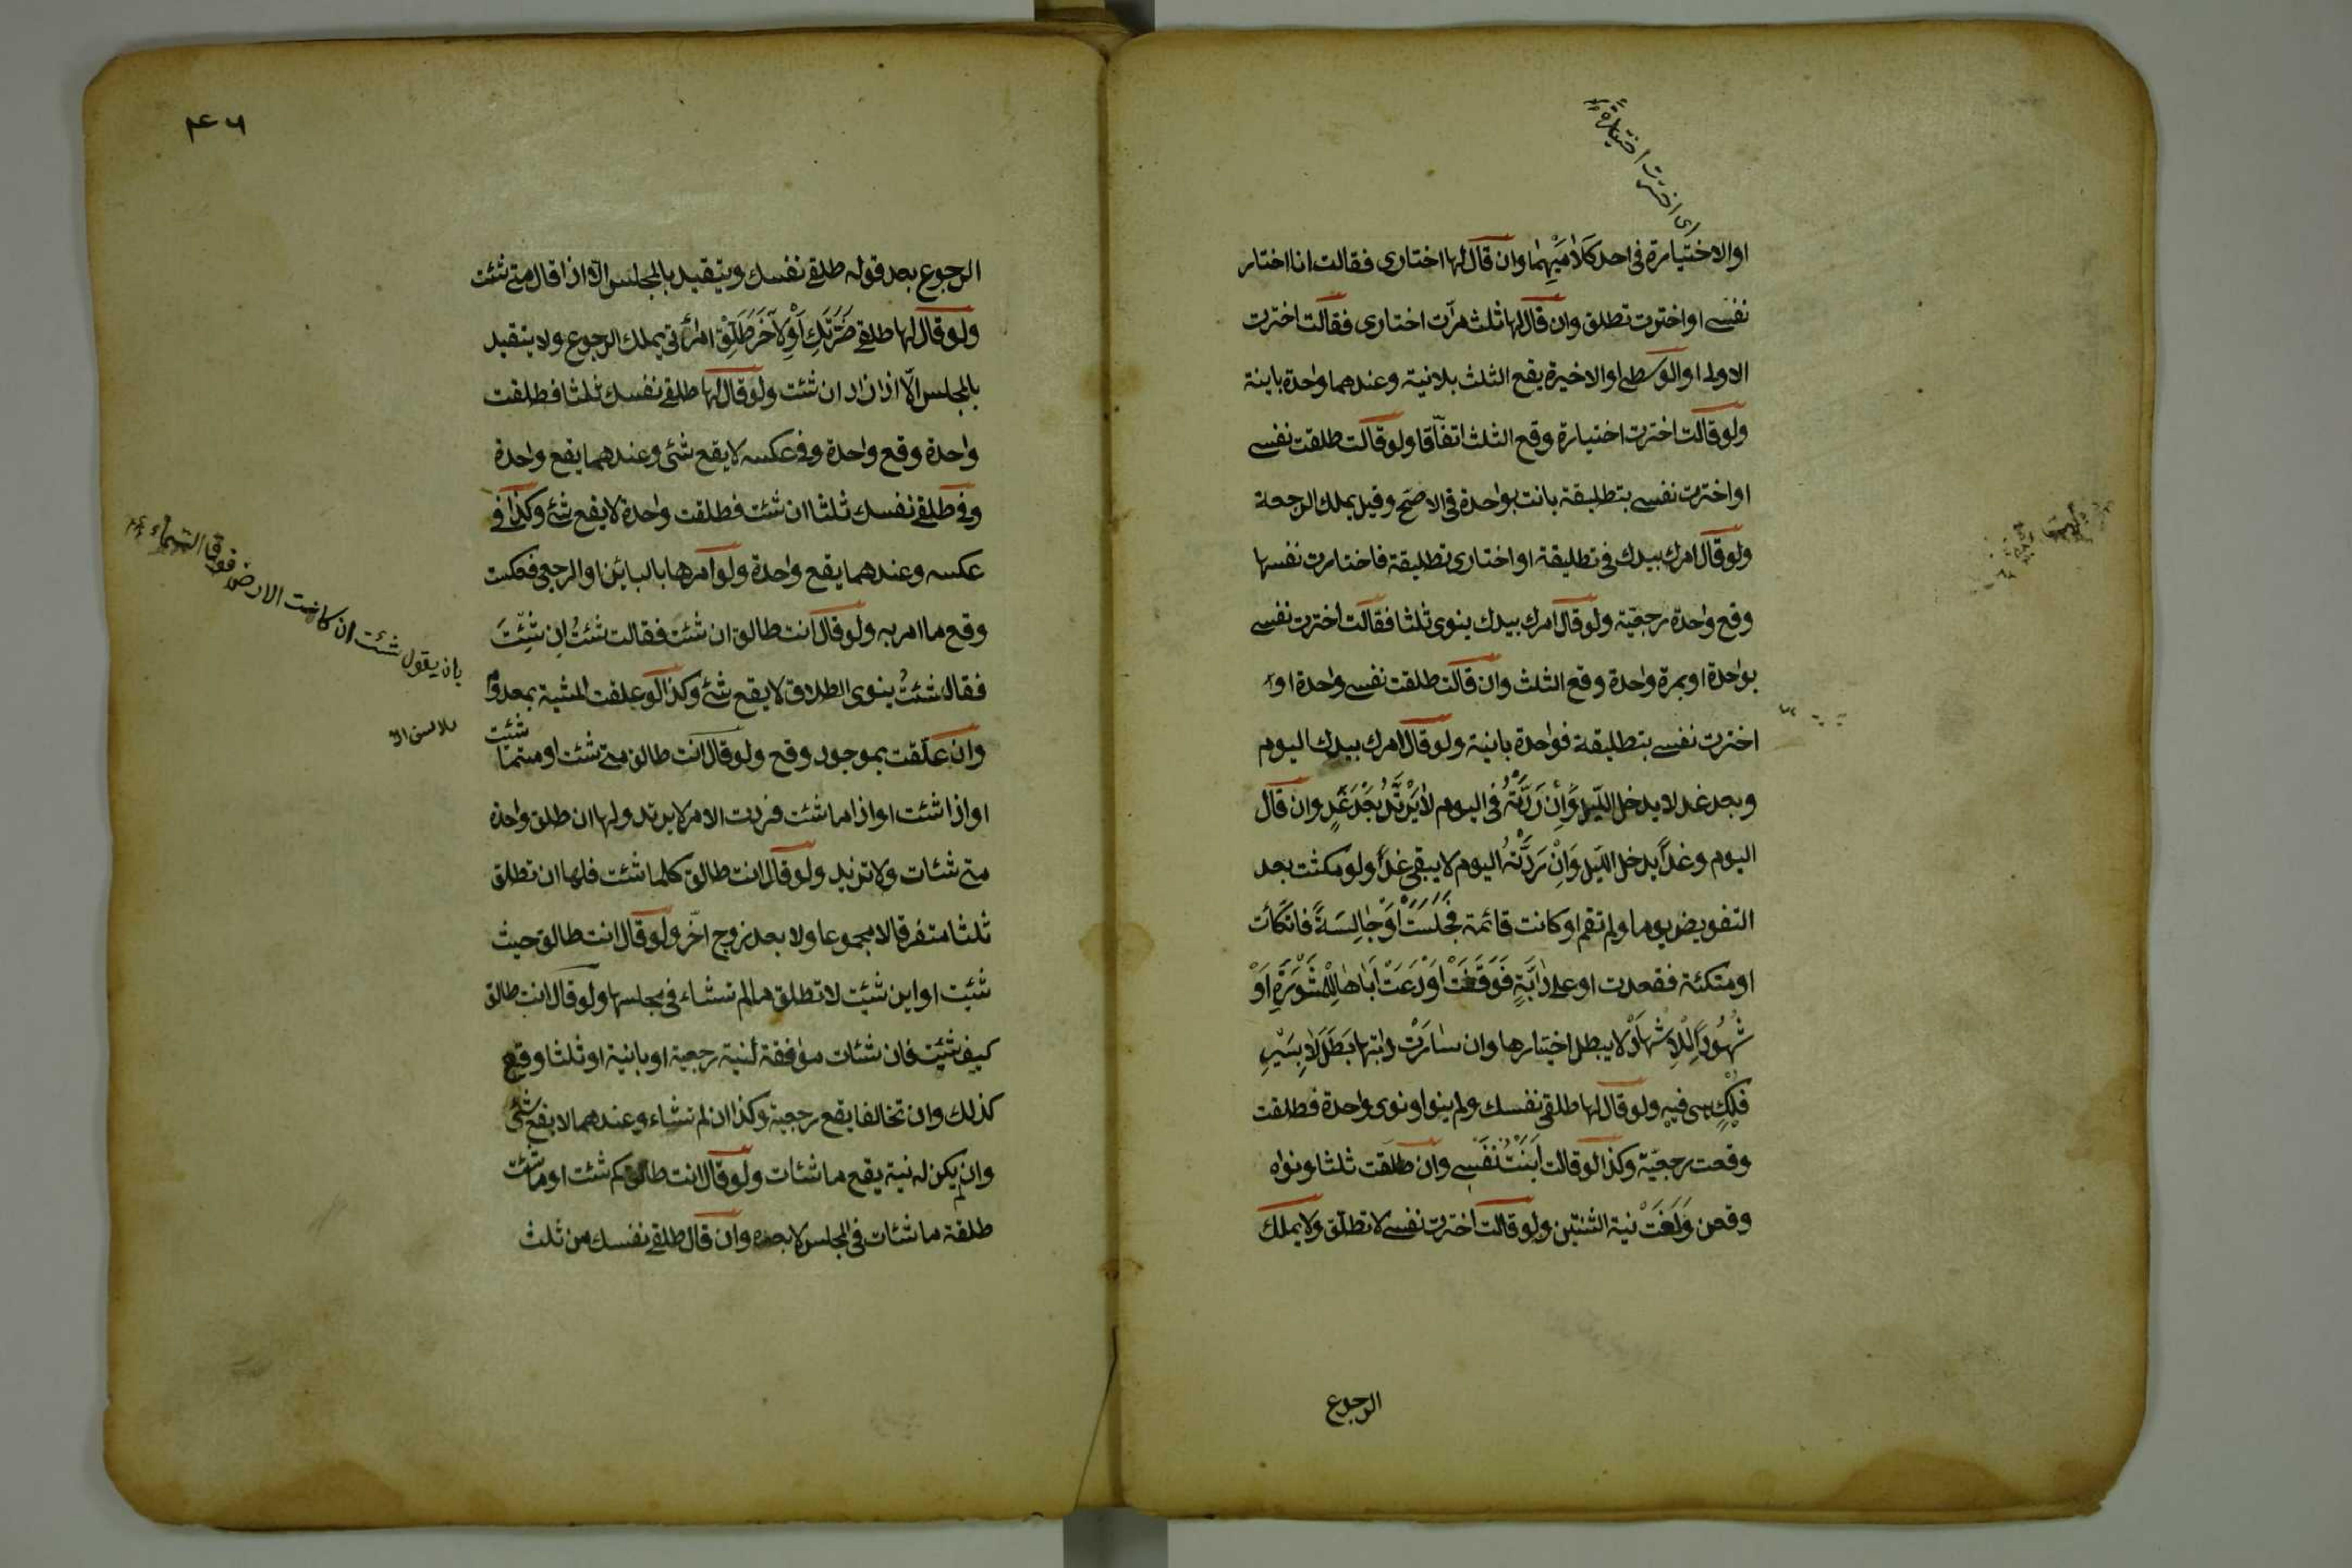 اى اخترت اختيارة
او الاختيارة فى احد كَلَامَيْهِمَا وان قال لها اختارى فقالت انا اختار
نفسى او اخترت تطلق وان قال لها ثلث مرّات اختارى فقالت اخترت
الاولى او الوسطى او الاخيرة يقع الثلث بلا نية وعندهما واحدة باينة
ولو قالت اخترت اختيارة وقع الثلث اتفاّقا ولو قالت طلقت نفسى
او اخترت نفسى بتطليقة بانت بواحدة فى الاصّح وقيل يملك الرجعة
ولو قال امرك بيدك فى تطليقة او اختارى تطليقة فاختارت نفسها
وقع واحدة رجعيّة ولو قال امرك بيدك ينوى ثلثا فقالت اخترت نفسى
بواحدة او بمرة واحدة وقع الثلث وان قالت طلقت نفسى واحدة او
اخترت نفسى بتطليقة فواحدة باينة ولو قال امرك بيدك اليوم
وبعد غد لا يدخل اللّيل وَاِنْ رَدَّتْهُ فى اليوم لا يَرْتَدُّ بَعْدَ غَدٍ وان قال
اليوم وغداً يدخل اللّيل وَاِنْ رَدَّتْهُ اليوم لا يبقى غداً ولو مكثت بعد
التفويض يوما ولم تقم او كانت قائمة فَجَلَسَتْ اَوْ جَالِسَةً فاتكأت
او متكئة فقعدت او على دَابَّةٍ فَوَقَفَتْ اَوْ دَعَتْ اَبَاهَا لِلْمَشْوَرَةِ اَوْ
شُهُودًا لِلْاِشْهَادِ لا يبطل اختيارها وان سارَتْ دابتها بَطَلَ لا بِسَيْرِ
فُلْكٍ هى فيه ولو قال لها طلقى نفسك ولم ينو او نوى واحدة فطلقت
وقعت رجعيّة وكذا لو قالت اَبَنْتُ نَفْسِى وان طلقت ثلثا ونواه
وقعن وَلَغَتْ نية الثنتين ولو قالت اخترت نفسى لا تطلّق ولا يملك
الرجوع
٤٦
الرجوع بعد قوله طلقى نفسك ويتقيد بالمجلس الاّ اذا قال متى شئت
ولو قال لها طلقى ضَرَّتَكِ اَوْ لِآخَرَ طَلِّقْ امرأتى يملك الرجوع ولا يتقيد
بالمجلس الاّ اذا زاد ان شئت ولو قال لها طلقى نفسك ثلثا فطلقت
واحدة وقع واحدة وفى عكسه لا يقع شئ وعندهما يقع واحدة
وفى طلقى نفسك ثلثا ان شئت فطلقت واحدة لا يقع شئ وكذا فى
عكسه وعندهما يقع واحدة ولو امرها بالبائن او الرجعى فعكست
وقع ما امر به ولو قال انت طالق ان شئت فقالت شئتُ اِن شِئْتَ
فقال شئتُ ينوى الطلاق لا يقع شئ وكذا لو علقت المشية بمعدوم
بان يقول شئت ان كانت الارض فوق السّماء
وان علّقت بموجود وقع ولو قال انت طالق متى شئت او متما شئت
او اذا شئت او اذا ما شئت فردت الامر لا يرتد ولها ان طلق واحدة
متى شئات ولا تزيد ولو قال انت طالق كلما شئت فلها ان تطلق
ثلثا متفرقا لا مجموعا ولا بعد زوج اخّر ولو قال انت طالق حيث
شئت او اين شئت لا تطلق ما لم تشاء فى مجلسها ولو قال انت طالق
كيف شئت فان شئات موافقة لنية رجعية او باينة او ثلثا وقع
كذلك وان تخالفا يقع رجعية وكذا ان لم تشاء وعندهما لا يقع شئ
وان لم يكن له نية يقع ما شئات ولو قال انت طالق كم شئت او ما شئت
طلقة ما شئات فى المجلس لا بعده وان قال طلقى نفسك من ثلث